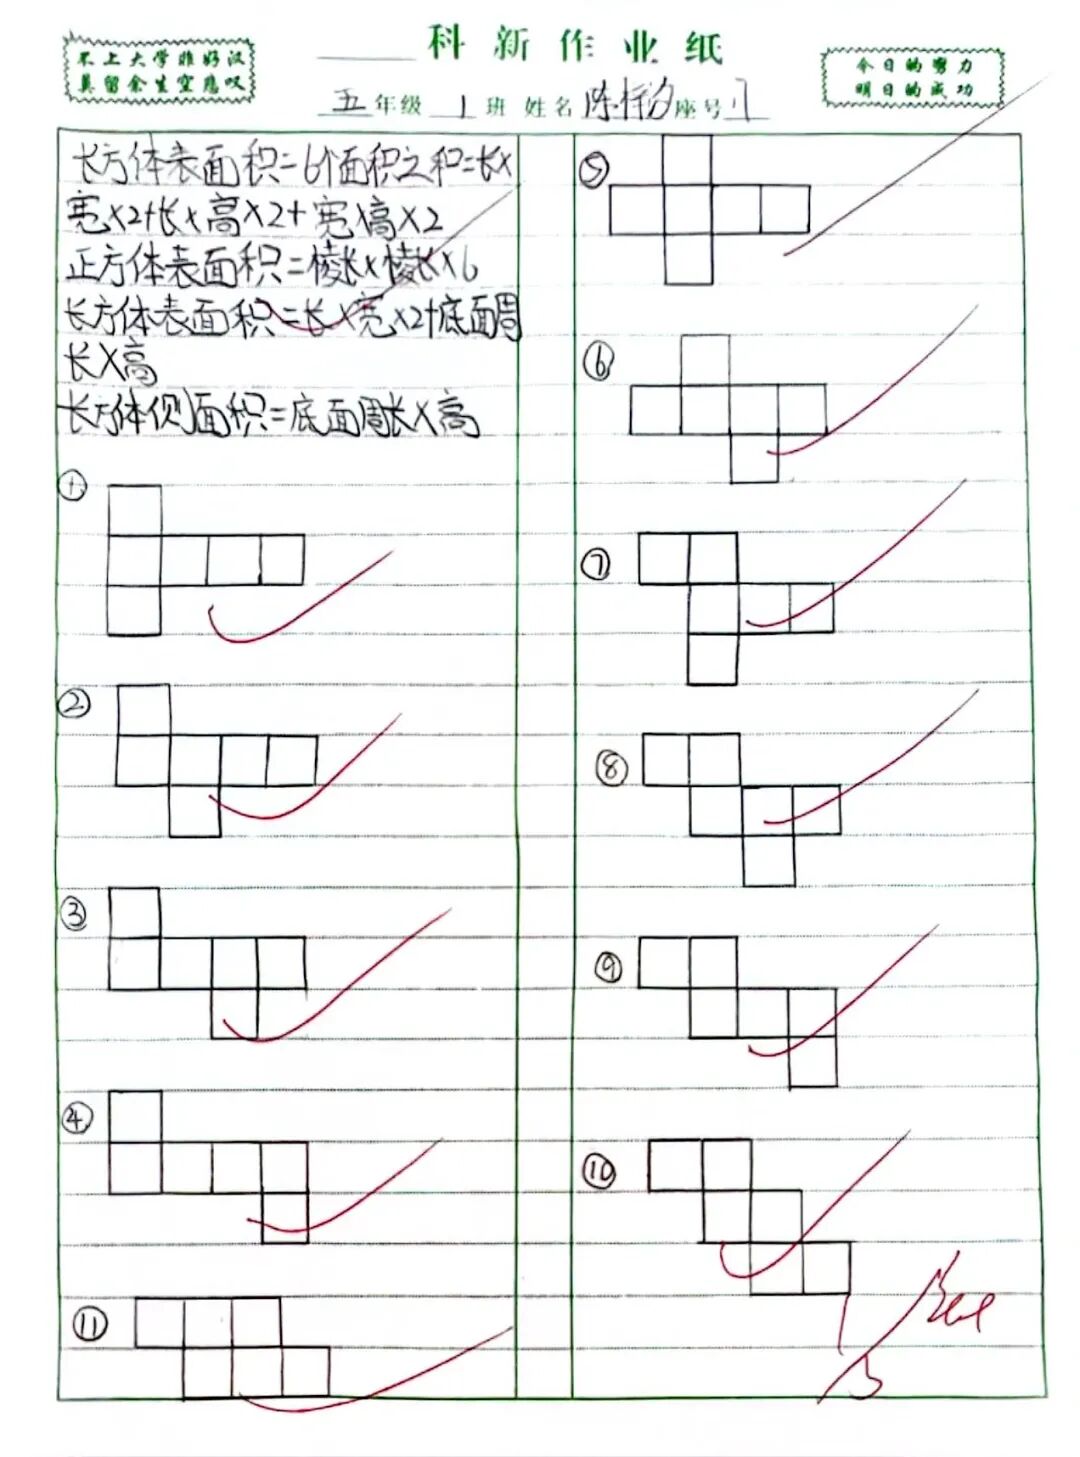 科新作业纸
不上大学非好汉
莫留余生空悲叹
今日的努力
明日的成功
五年级 1 班 姓名 陈 座号
长方体表面积=6个面积之和=长×
宽×2+长×高×2+宽×高×2
正方体表面积=棱长×棱长×6
长方体表面积=长×宽×2+底面周
长×高
长方体侧面积=底面周长×高
①
②
③
④
⑪
⑤
⑥
⑦
⑧
⑨
⑩